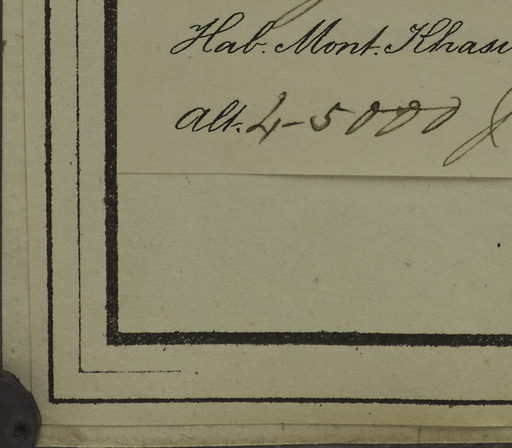 Hab. Mont. Khasi
Alt. 4-5000